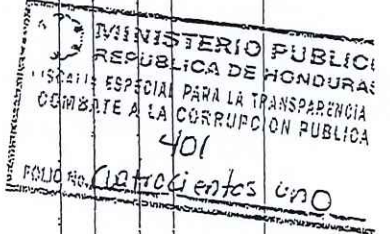 MINISTERIO PUBLIC
REPUBLICA DE HONDURAS
FISCALIA ESPECIAL PARA LA TRANSPARENCIA
COMBATE A LA CORRUPCION PUBLICA
401
FOLIO No. Cuatrocientos uno